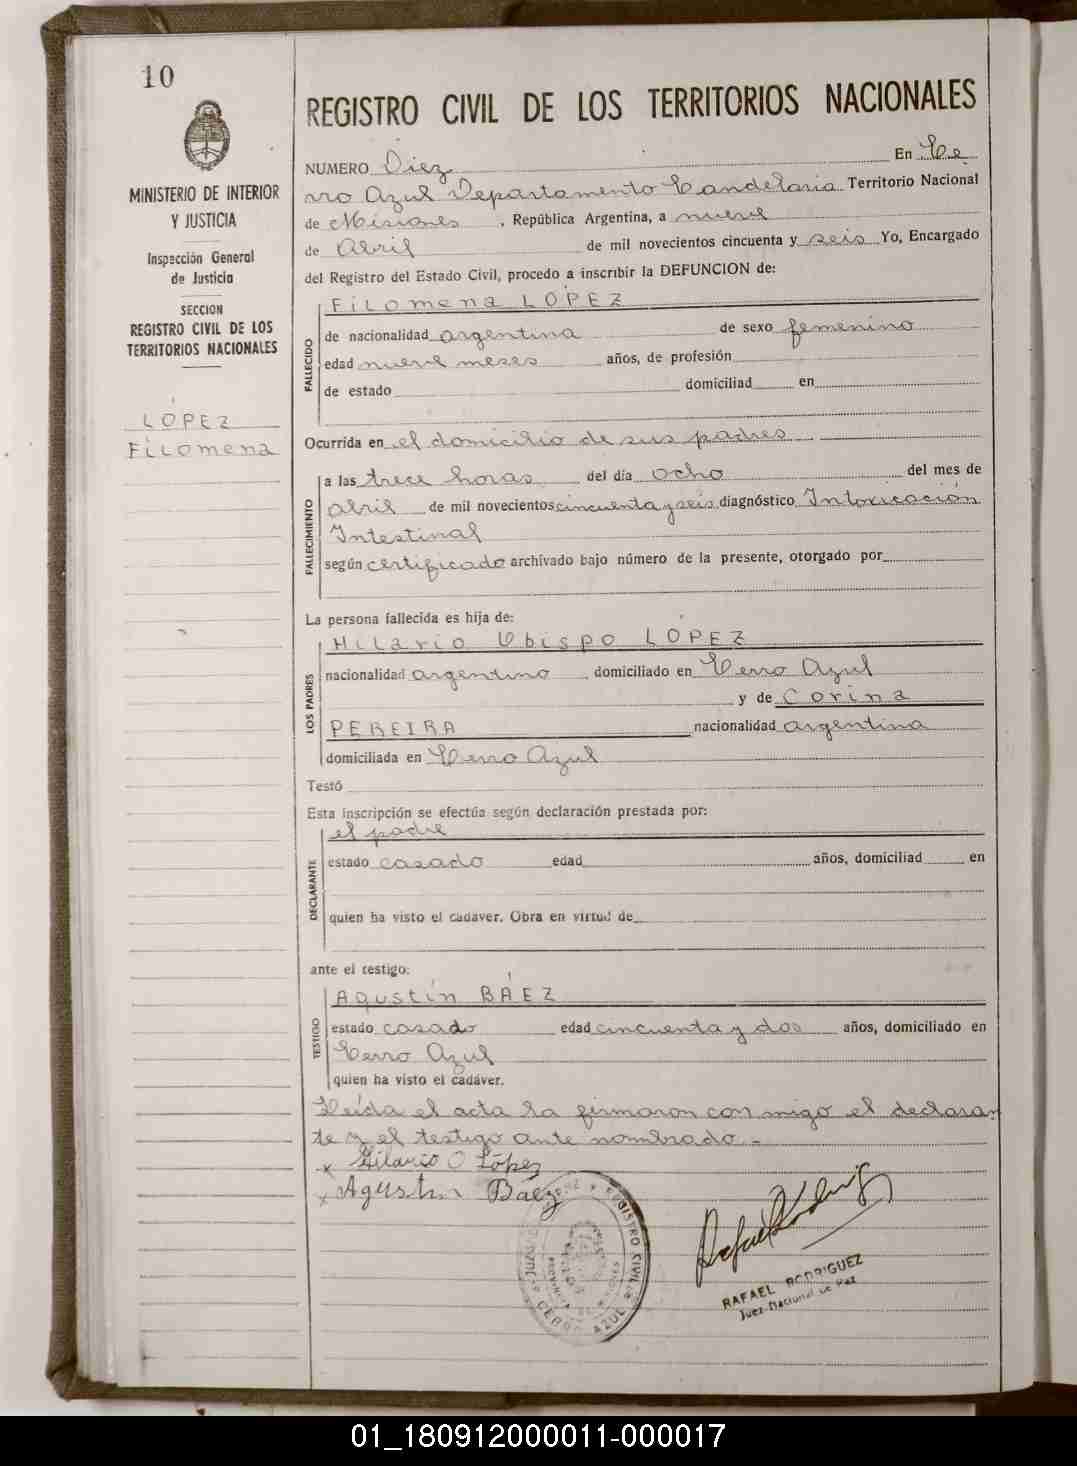 10
MINISTERIO DE INTERIOR
Y JUSTICIA
Inspección General
de Justicia
SECCION
REGISTRO CIVIL DE LOS
TERRITORIOS NACIONALES
LÓPEZ
Filomena
REGISTRO CIVIL DE LOS TERRITORIOS NACIONALES
NUMERO Diez En Ce
rro Azul Departamento Candelaria Territorio Nacional
de Misiones , República Argentina, a nueve
de Abril de mil novecientos cincuenta y seis Yo, Encargado
del Registro del Estado Civil, procedo a inscribir la DEFUNCION de:
FALLECIDO
Filomena LÓPEZ
de nacionalidad argentina de sexo femenino
edad nueve meses años, de profesión
de estado domiciliad en
Ocurrida en el domicilio de sus padres
FALLECIMIENTO
a las trece horas del día ocho del mes de
abril de mil novecientos cincuenta y seis diagnóstico Intoxicación
Intestinal
según certificado archivado bajo número de la presente, otorgado por
La persona fallecida es hija de:
LOS PADRES
Hilario Obispo LÓPEZ
nacionalidad argentino domiciliado en Cerro Azul
y de Corina
PEREIRA nacionalidad argentina
domiciliada en Cerro Azul
Testó
Esta inscripción se efectúa según declaración prestada por:
DECLARANTE
el padre
estado casado edad años, domiciliad en
quien ha visto el cadáver. Obra en virtud de
ante el testigo:
TESTIGO
Agustín BÁEZ
estado casado edad cincuenta y dos años, domiciliado en
Cerro Azul
quien ha visto el cadáver.
Leída el acta la firmaron con migo el declaran
te y el testigo ante nombrado.-
x Hilario O López
x Agustin Baéz
REGISTRO CIVIL
CERRO AZUL
Rafael Rodriguez
RAFAEL RODRIGUEZ
Juez Nacional de Paz
01_180912000011-000017